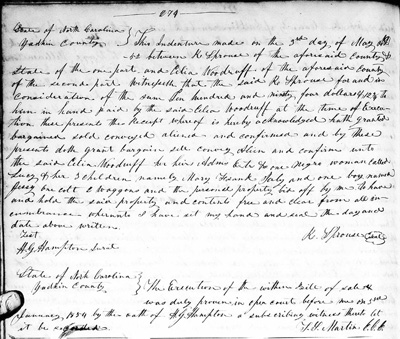 274
State of North Carolina
Yadkin County } This Indenture made on the 3rd day of May AD
between R Sprouse of the aforesaid County &
State of the one part and Celia Woodruff of the aforesaid county
of the second part Witnesseth that the said R Sprouse for and in
consideration of the sum Ten hundred and ninety four dollars & 12½ to
him in hand paid by the said Celia Woodruff at the time of Execu
tion these presents the Receipt whereof is hereby acknowledged hath granted
bargained sold conveyed aliend and confirmed and by these
presents doth grant bargain sell convey alien and confirm unto
the said Celia Woodruff her heirs Adms &c to one Negro woman called
Lucy & her 3 children namely Mary Frank and one boy named
one colt 2 waggons and the personal property bid off by me to have
and hold the said property and contents free and clear from all in
cumbrances whereunto I have set my hand and seal the day and
date above written.
Test R Sprouse Seal
H.G. Hampton Jurat
State of North Carolina
Yadkin County } The Execution of the within Bill of sale
was duly proven in open court before me on
January 1854 by the oath of H.G. Hampton a subscribing witness thereto let
it be recorded